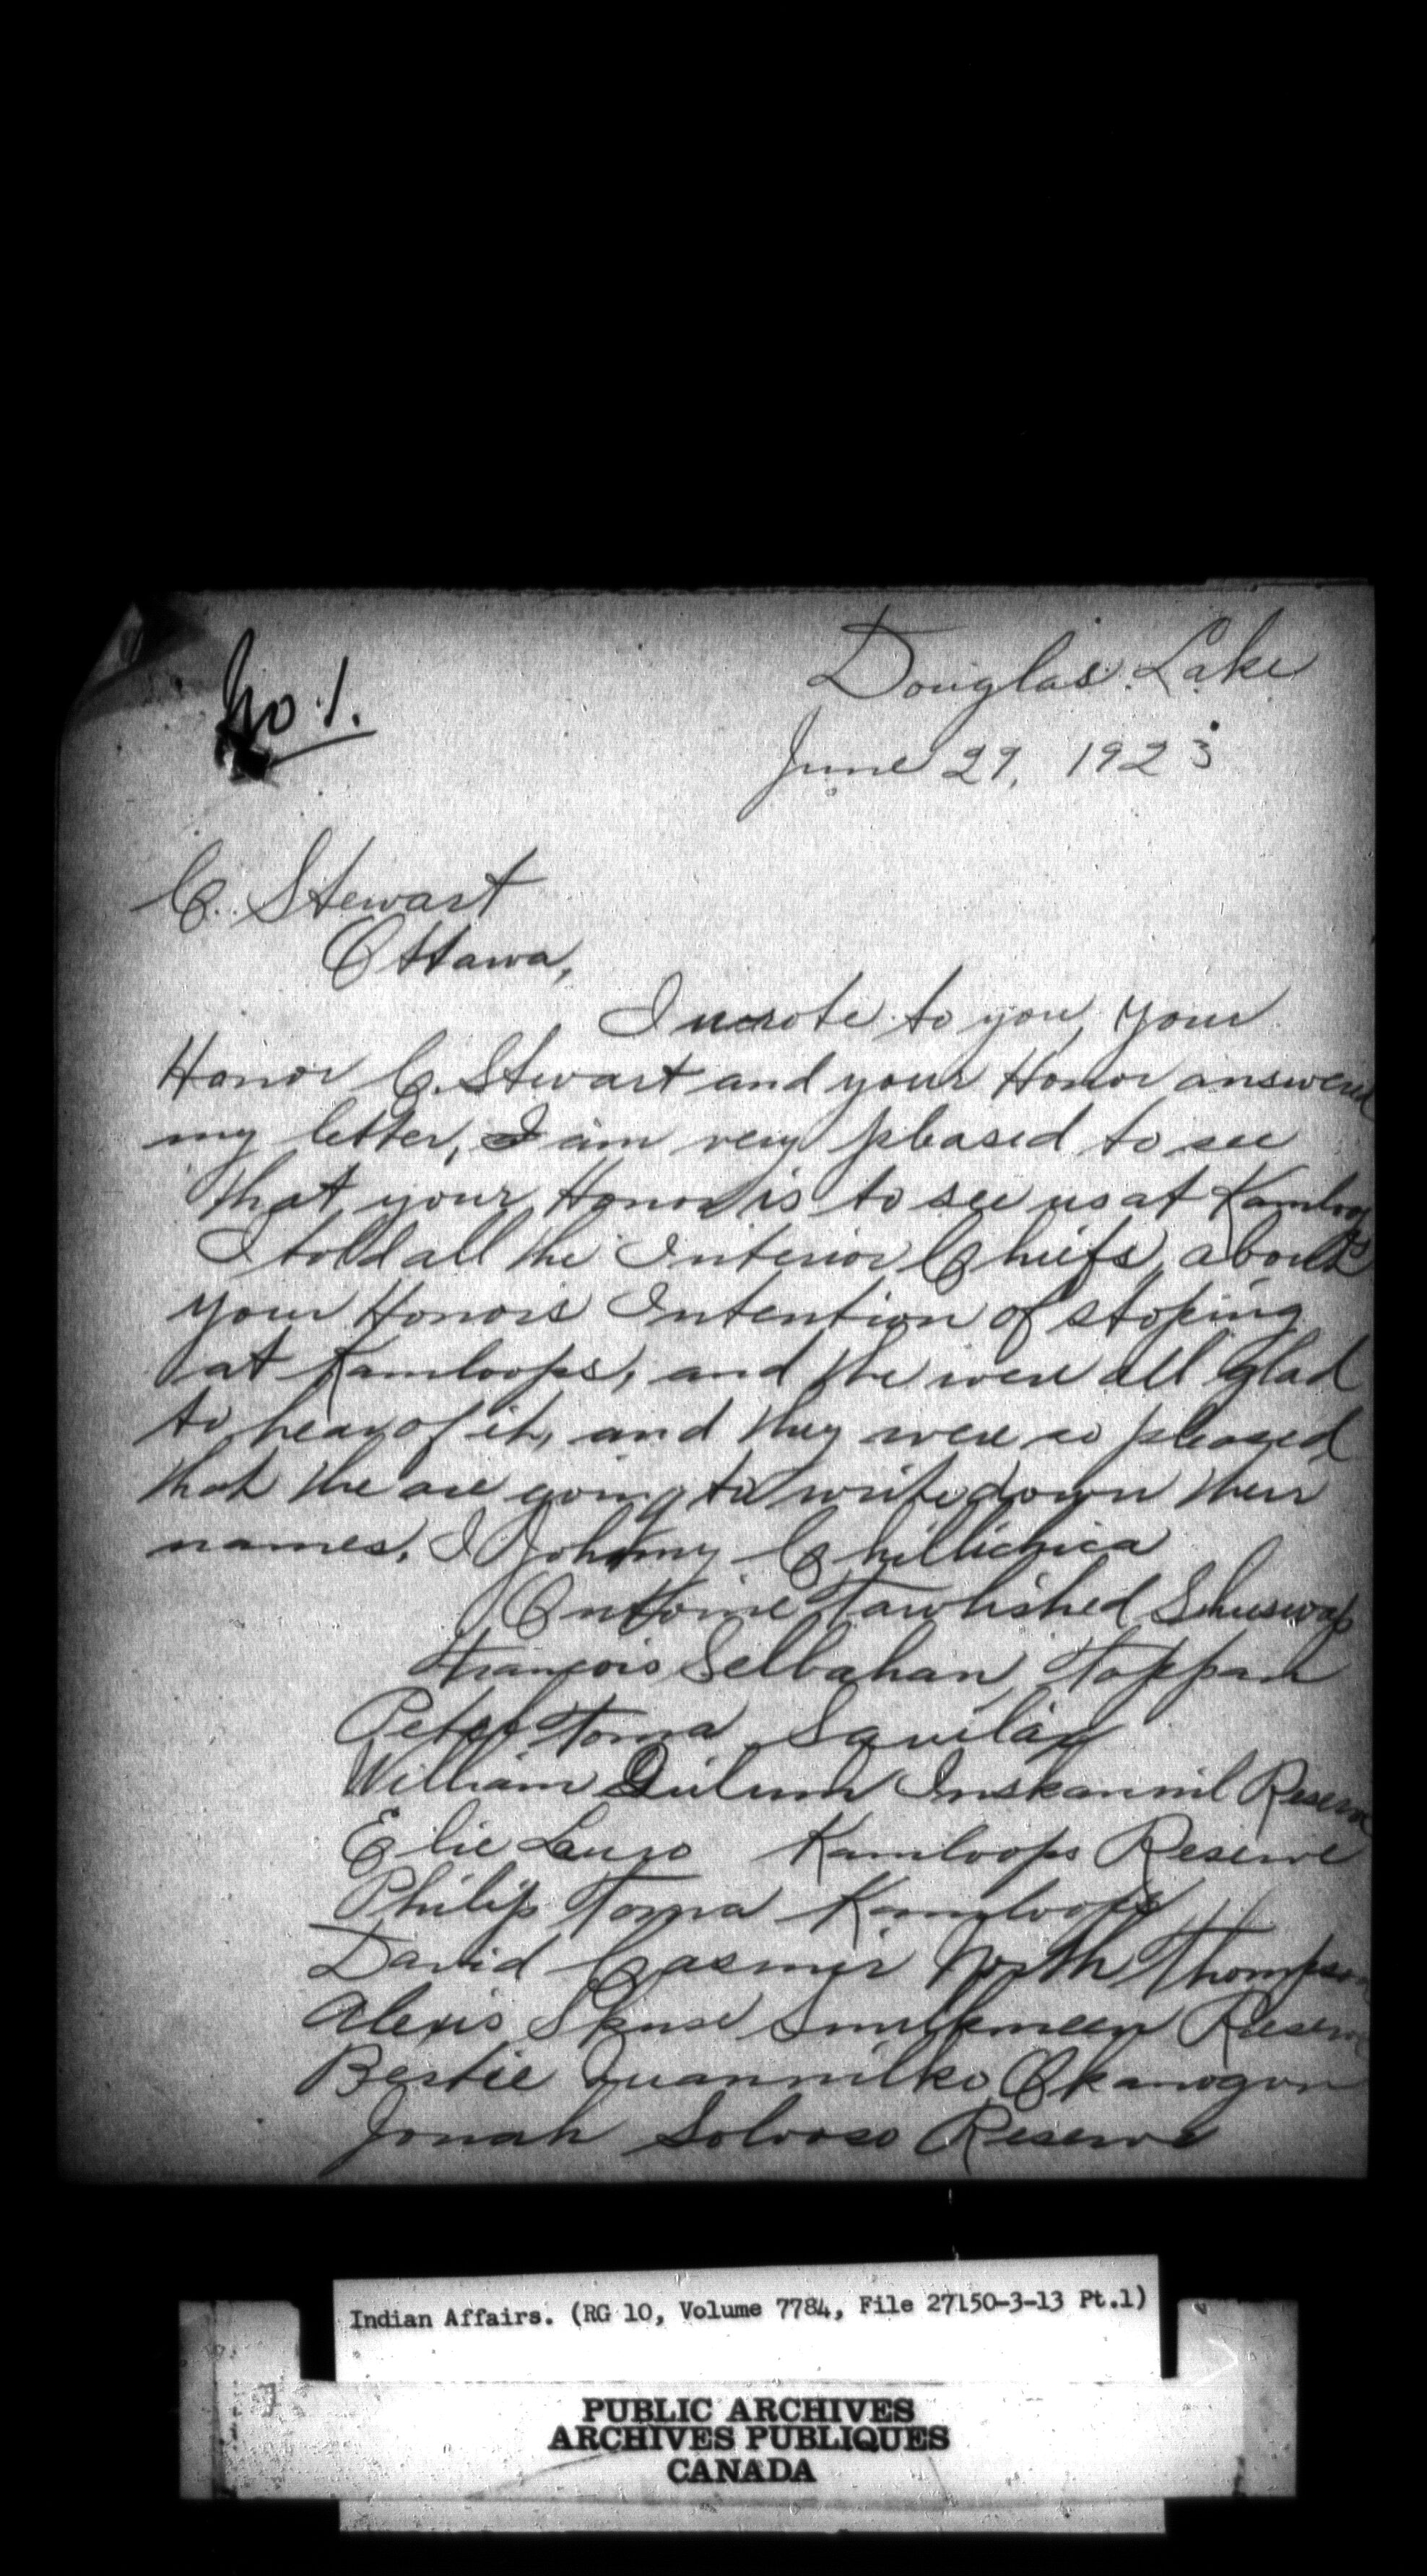 No 1.
Douglas Lake
June 29, 1923
C. Stewart
Ottawa,
I wrote to you, your
Honor C. Stewart and your Honor answered
my letter, I am very pleased to see
that your Honor is to see us at Kamloops
I told all the Interior Chiefs about
your Honors Intention of stoping
at Kamloops, and the were all glad
to hear of it, and they were so pleased
that the are going to write down their
names. I Johnny Chillichica
Shuswap
François Selbahan, Toppan
Peter Toma
William Reserve
Elie Kamloops Reserve
Philip Toma Kamloops
David Casmir North Thompson
Alexis Skuse Reserve
Bertie Okanogon
Jonah Reserve
Indian Affairs. (RG 10, Volume 7784, File 27150-3-13 Pt.1)
PUBLIC ARCHIVES
ARCHIVES PUBLIQUES
CANADA